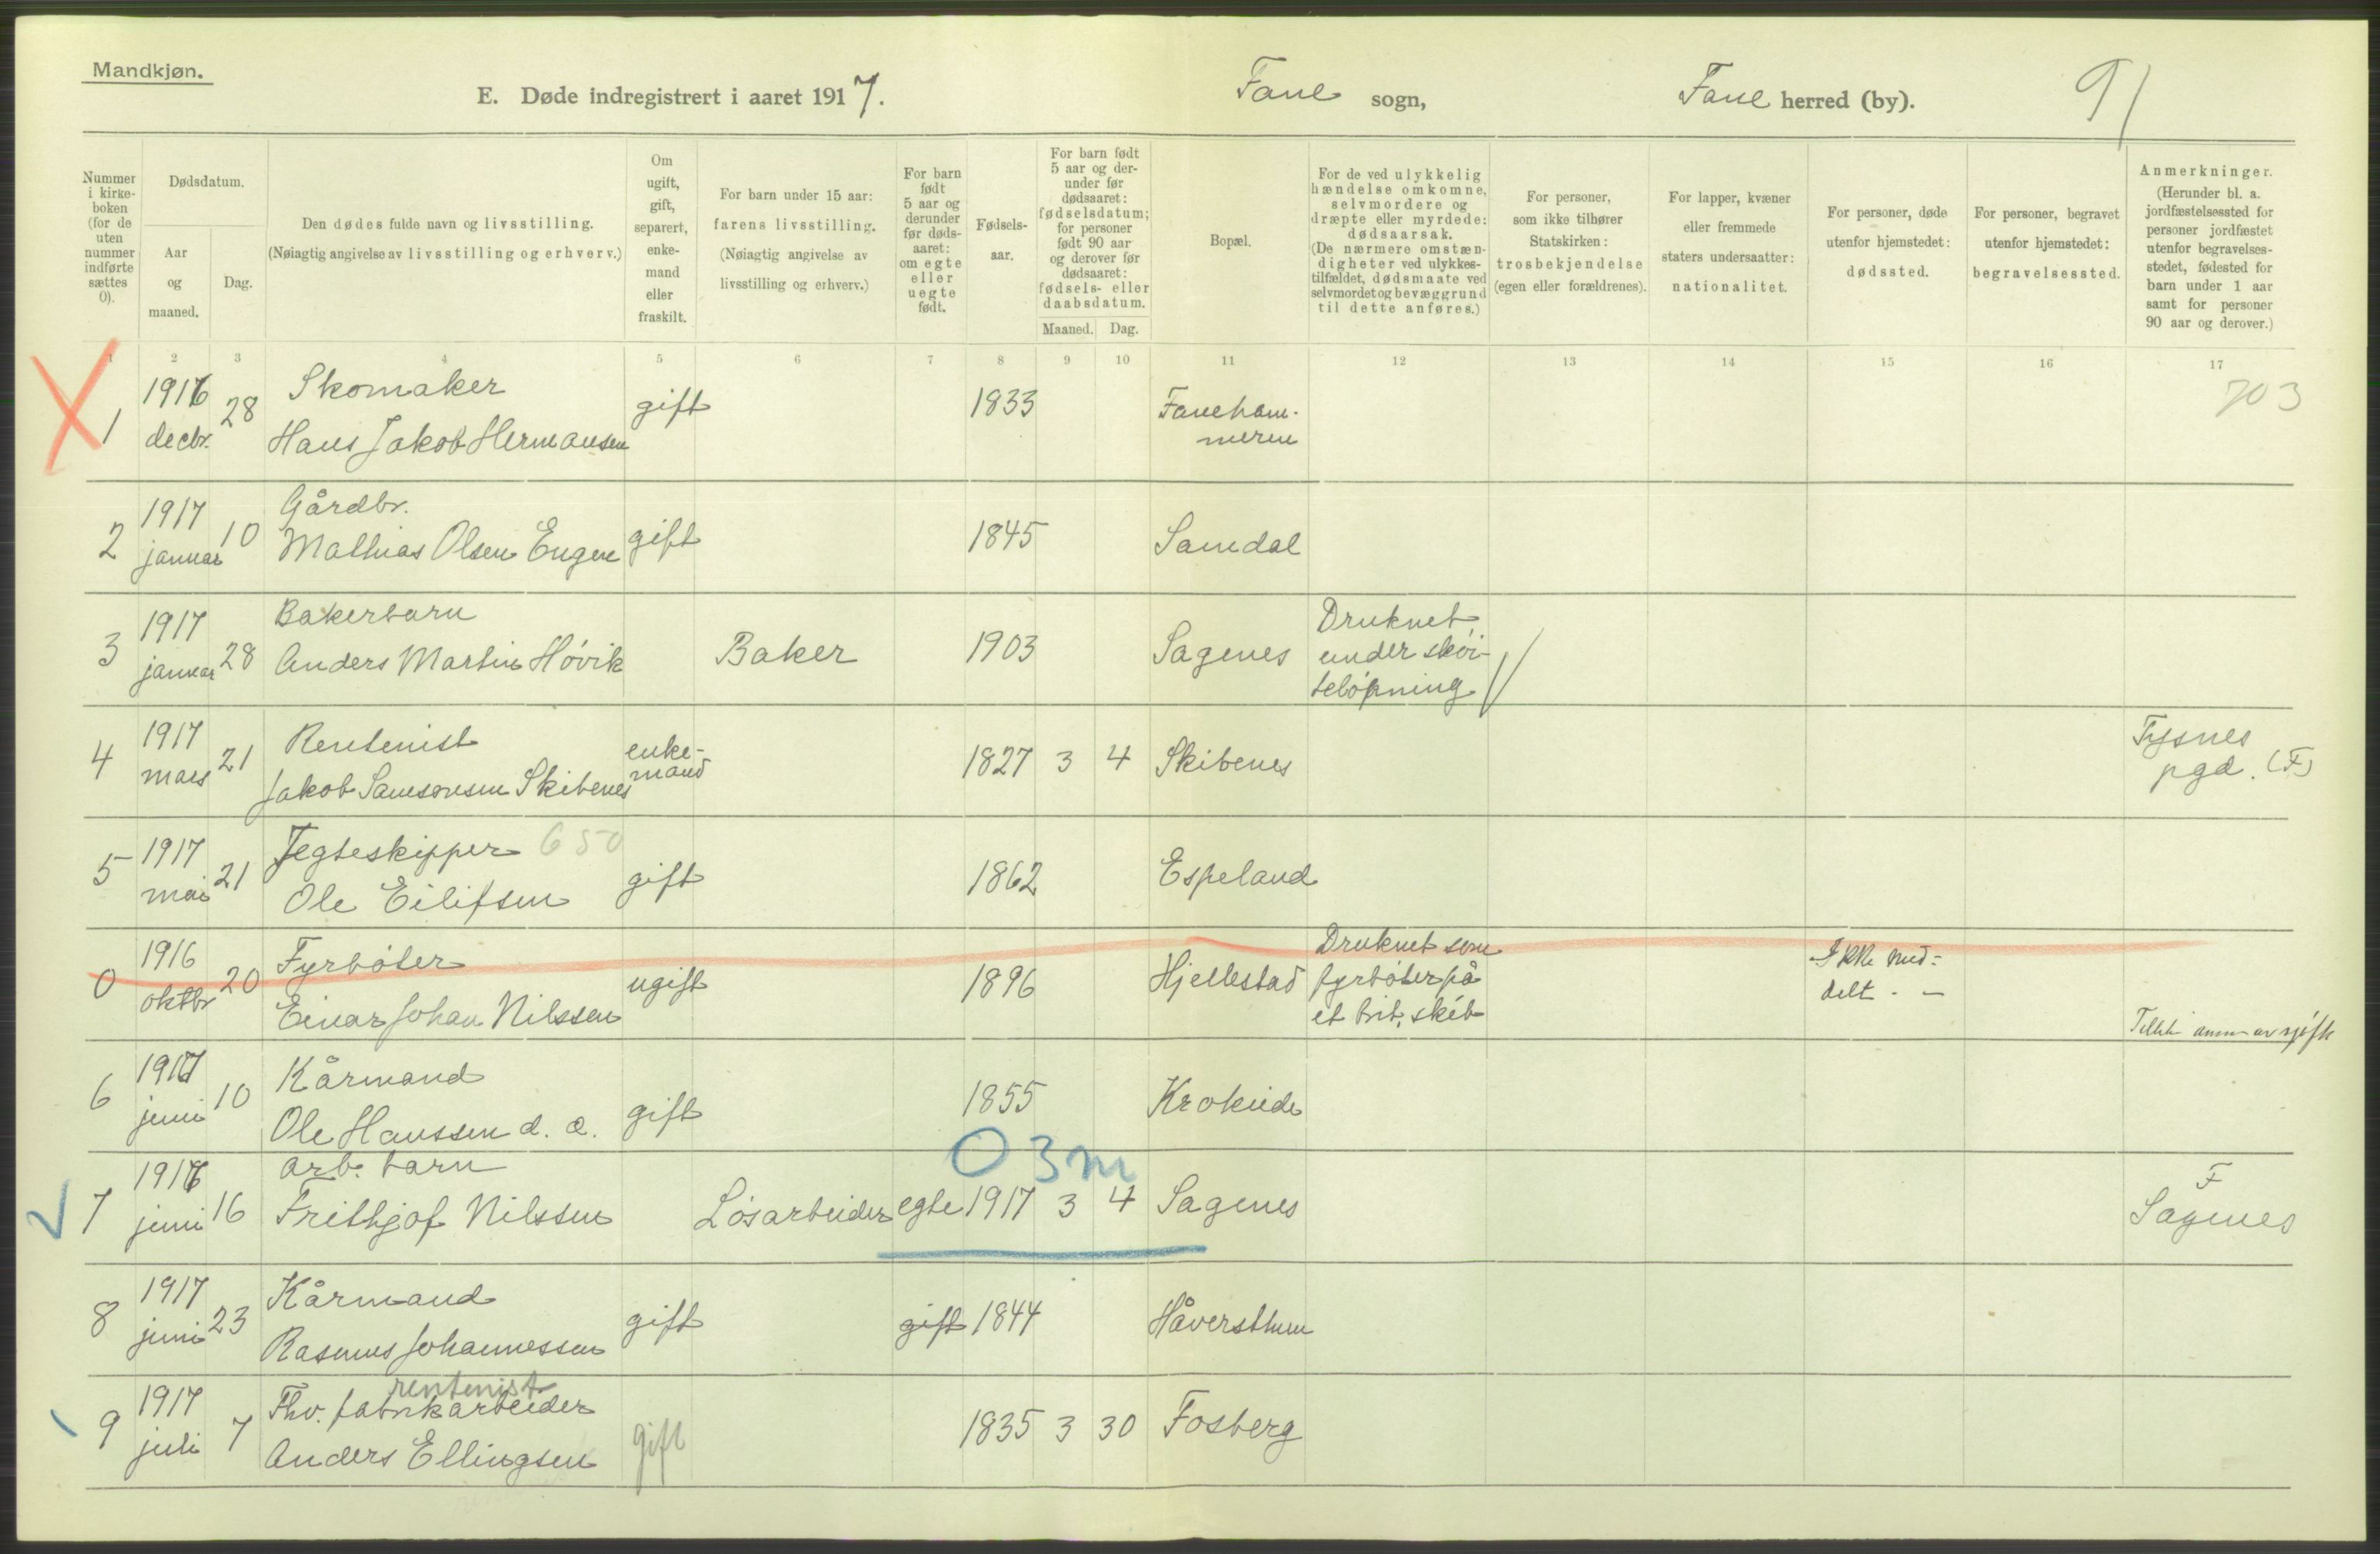 Mandkjøn.
E. Døde indregistrert i aaret 1917. Fane sogn, Fane herred (by). 91
Nummer i kirke-boken (for de uten nummer indførte sættes 0).
Dødsdatum.
Aar og maaned.
Dag.
Den dødes fulde navn og livsstilling.
(Nøiagtig angivelse av livsstilling og erhverv.)
Om ugift, gift, separert, enke-mand eller fraskilt.
For barn under 15 aar:
farens livsstilling.
(Nøiagtig angivelse av livsstilling og erhverv.)
For barn født 5 aar og derunder før døds-aaret: om egte eller uegte født.
Fødsels-aar.
For barn født 5 aar og der-under før dødsaaret: fødselsdatum; for personer født 90 aar og derover før dødsaaret: fødsels- eller daabsdatum.
Maaned. Dag.
Bopæl.
For de ved ulykkelig hændelse omkomne, selvmordere og dræpte eller myrdede: dødsaarsak.
(De nærmere omstæn-digheter ved ulykkes-tilfældet, dødsmaate ved selvmordet og bevæggrund til dette anføres.)
For personer, som ikke tilhører Statskirken: trosbekjendelse (egen eller forældrenes).
For lapper, kvæner eller fremmede staters undersaatter: nationalitet.
For personer, døde utenfor hjemstedet: dødssted.
For personer, begravet utenfor hjemstedet: begravelsessted.
Anmerkninger.
(Herunder bl. a. jordfæstelsessted for personer jordfæstet utenfor begravelses-stedet, fødested for barn under 1 aar samt for personer 90 aar og derover.)
1 2 3 4 5 6 7 8 9 10 11 12 13 14 15 16 17
1 1916 decbr. 28 Skomaker
Hans Jakob Hermansen gift 1833 Faneham-
meren 703
2 1917 januar 10 Gårdbr.
Mathias Olsen Engen gift 1845 Samdal
3 1917 januar 28 Bakerbarn
Anders Martin Høvik Baker 1903 Sagenes Druknet
under skøi-
teløpning
4 1917 mars 21 Rentenist
Jakob Samsonsen Skibenes enke-
mand 1827 3 4 Skibenes Tysnes
pgd. (F)
5 1917 mai 21 Jegteskipper 650
Ole Eilifsen gift 1862 Espeland
0 1916 oktbr 20 Fyrbøter
Einar Johan Nilssen ugift 1896 Hjellestad Druknet som
fyrbøter på
et brit. skib Ikke med-
delt.
6 1917 juni 10 Kårmand
Ole Hanssen d. e. gift 1855 Krokeide
03m
7 1917 juni 16 arb. barn
Frithjof Nilssen Løsarbeider egte 1917 3 4 Sagenes F
Sagenes
8 1917 juni 23 Kårmand
Rasmus Johannessen gift gift 1844 Håversthun
9 1917 juli 7 rentenist
Fhv. fabrikarbeider
Anders Ellingsen gift 1835 3 30 Fosberg